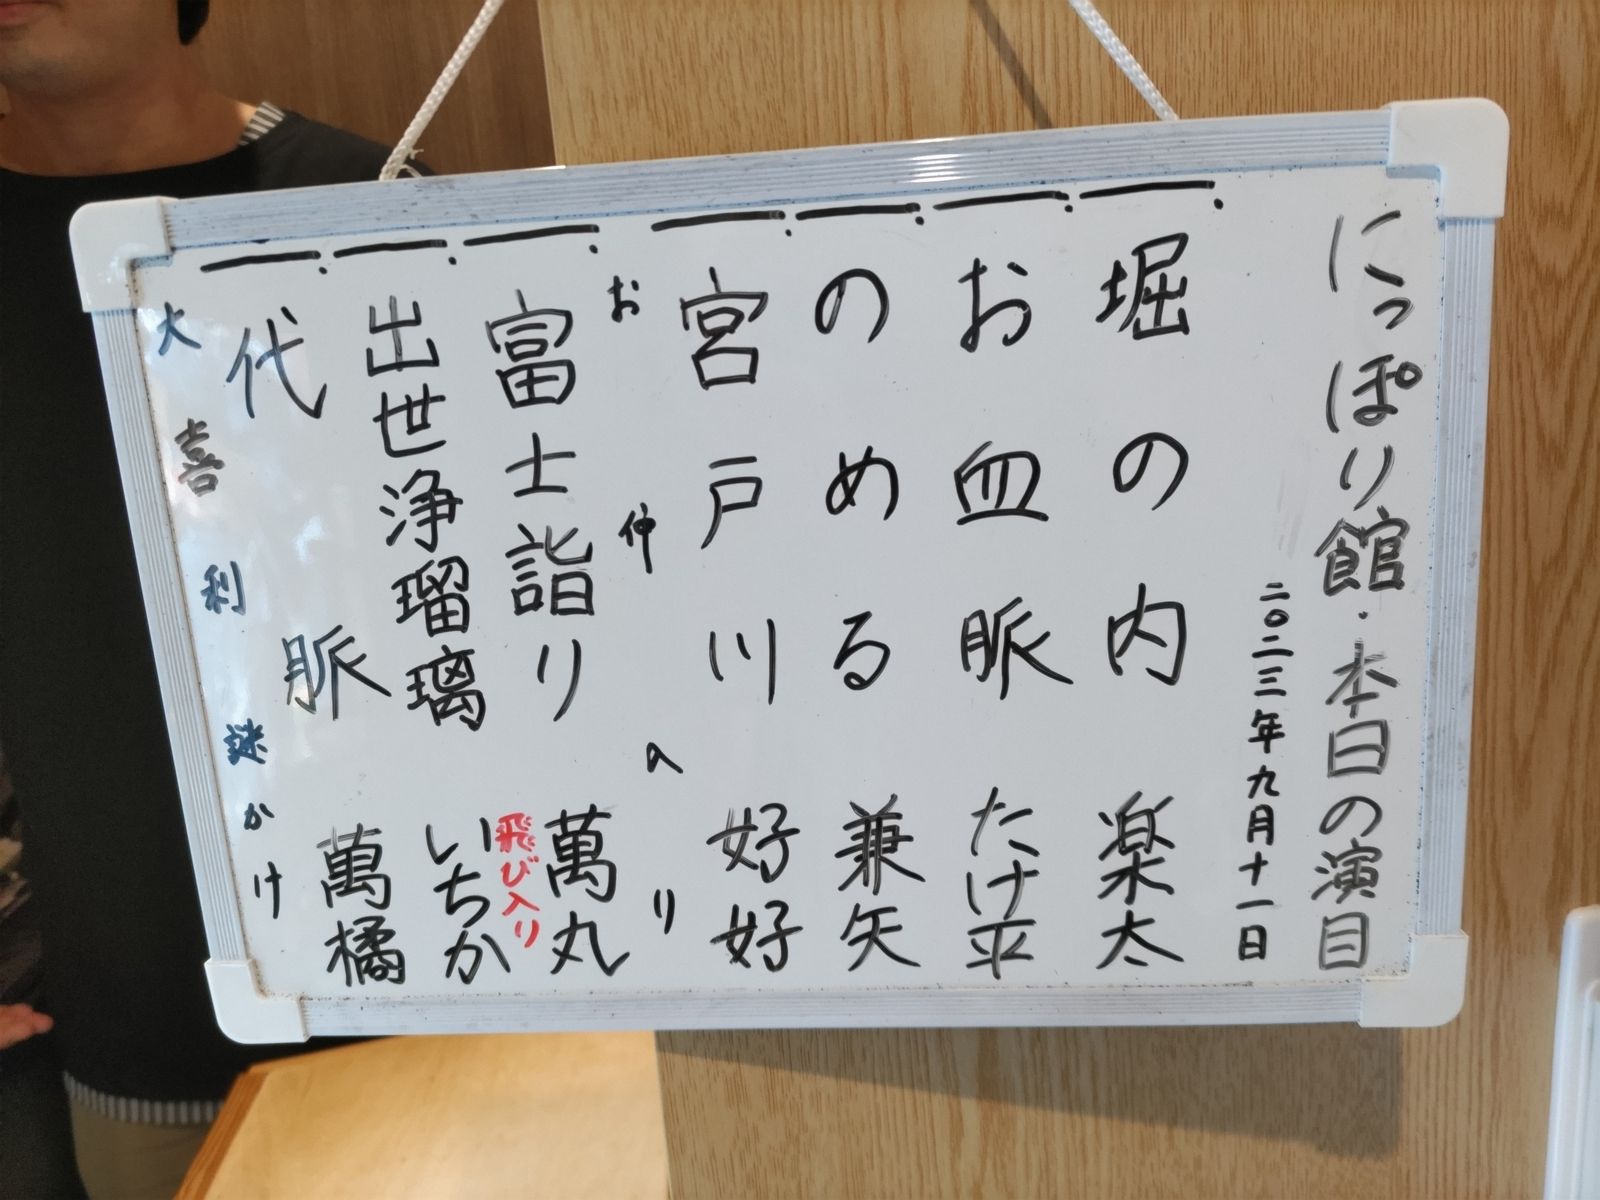 にっぽり館・本日の演目
二〇二三年九月十一日
一、堀の内 楽太
一、お血脈 たけ平
一、のめる 兼矢
一、宮戸川 好好
お仲入り
一、富士詣り 萬丸
飛び入り
一、出世浄瑠璃 いちか
一、代脈 萬橘
大喜利 謎かけ